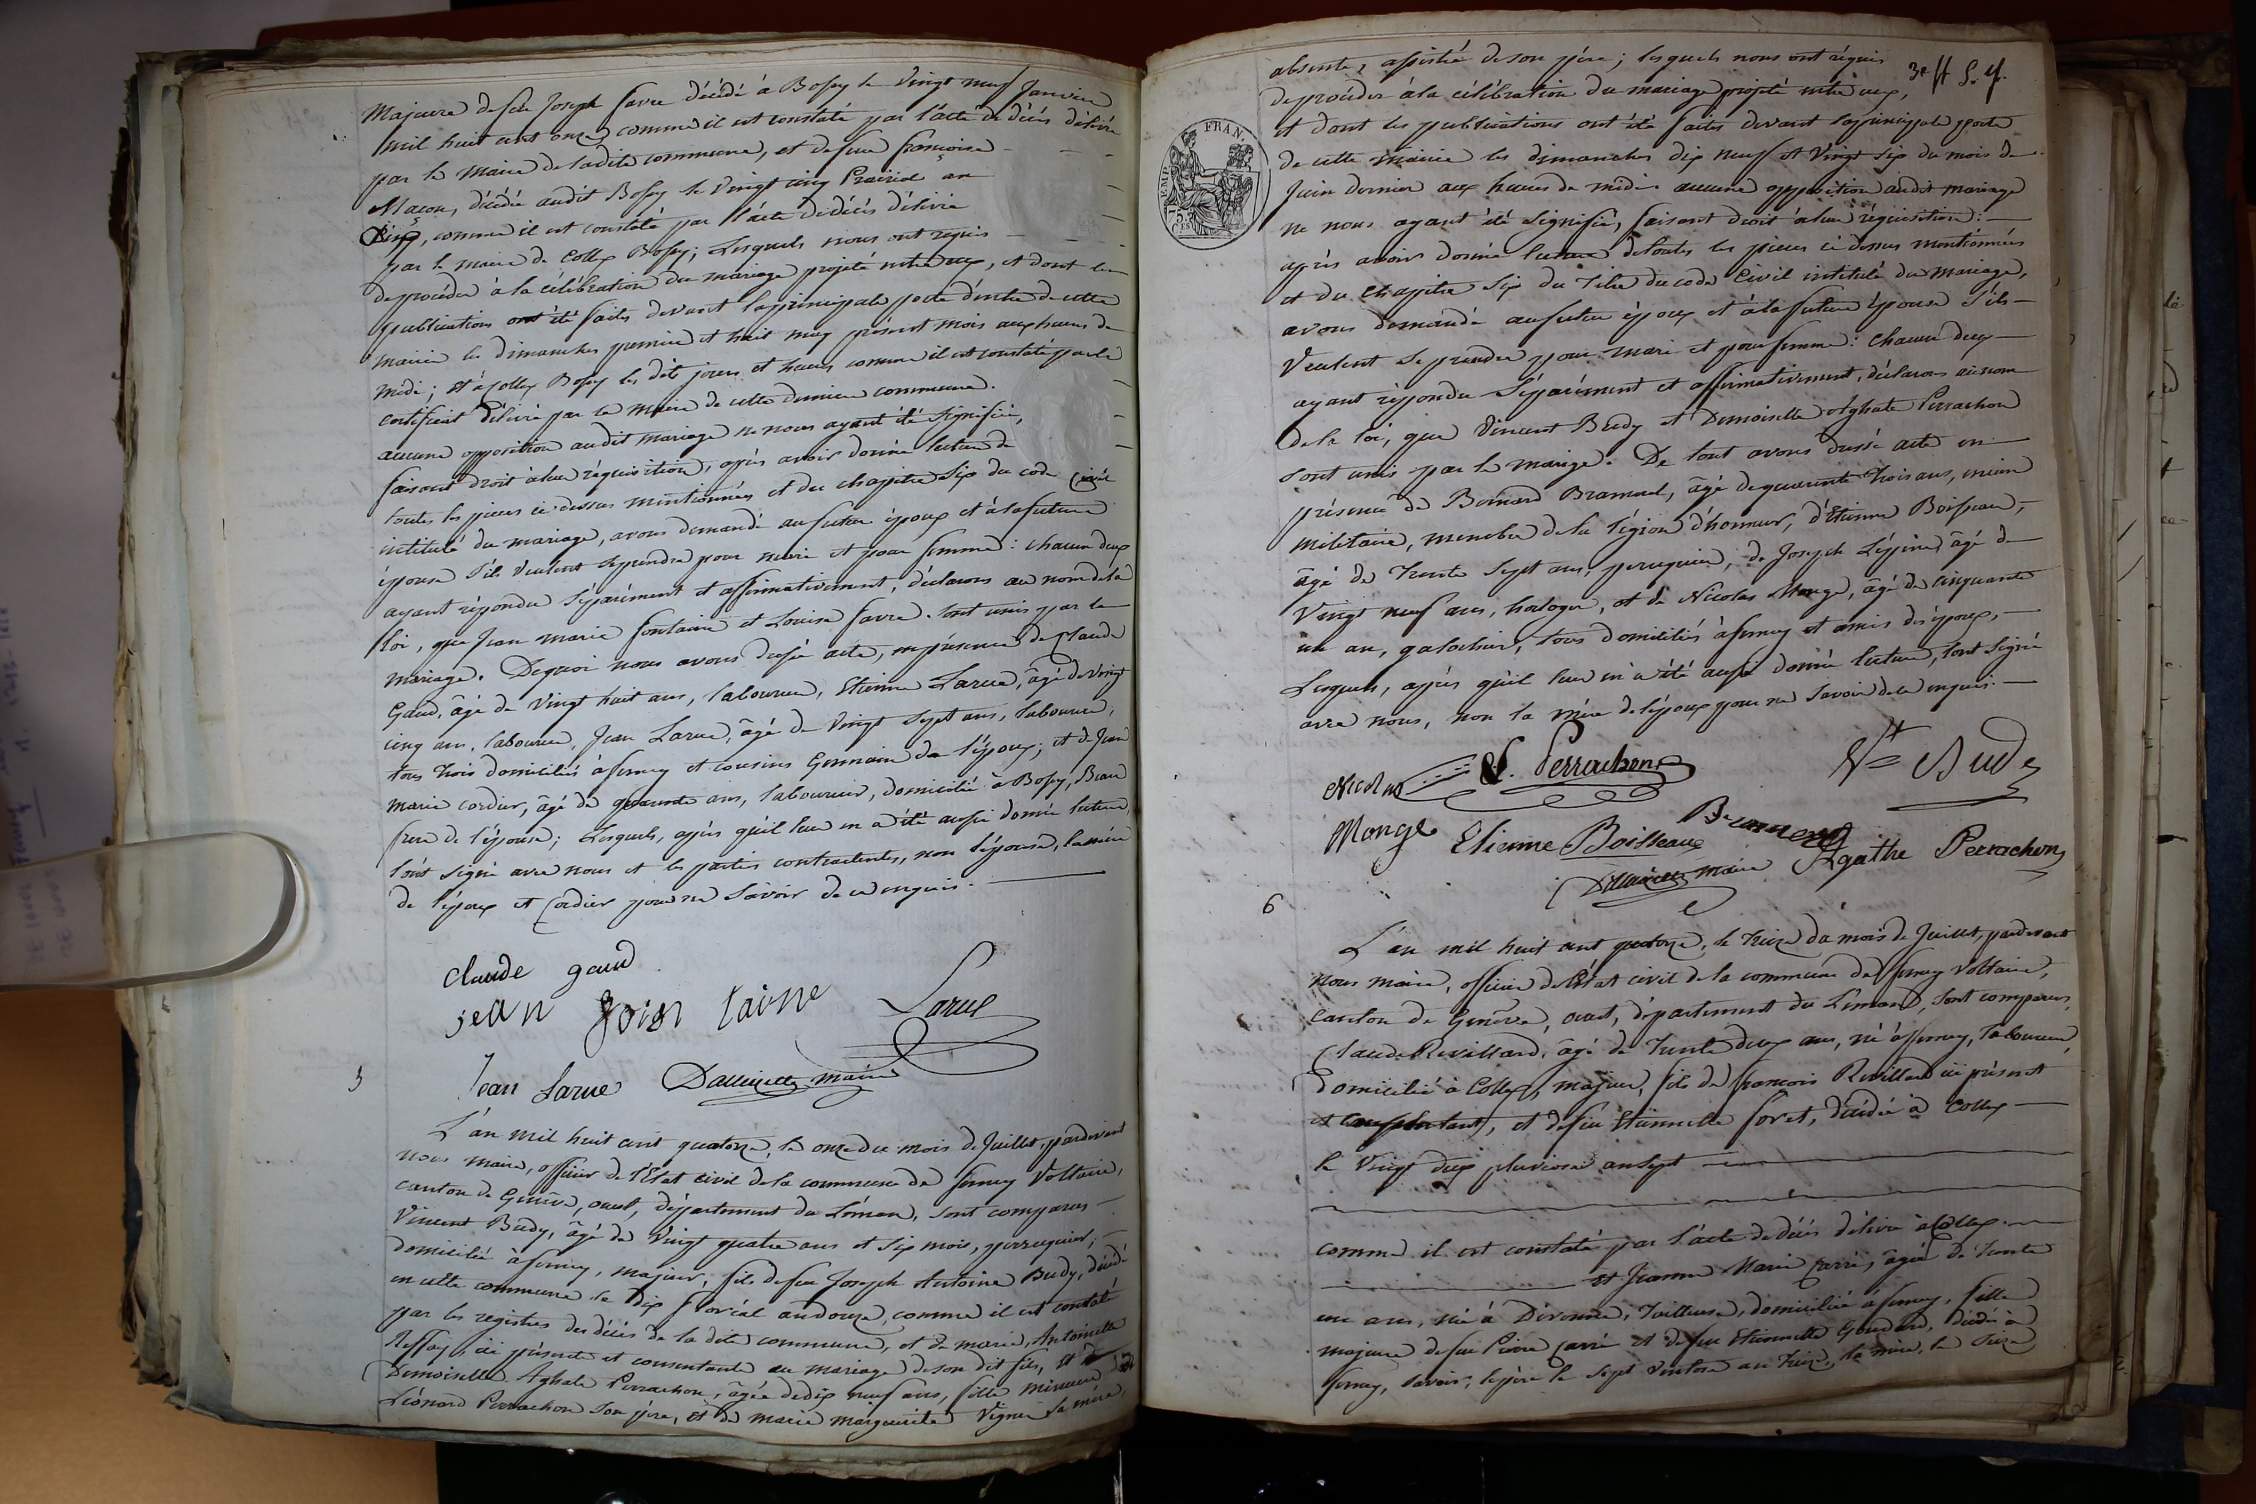 Majeure de feu Joseph favre décédé à Bossy le Vingt neuf Janvier
mil huit cent onze, comme il est constaté par l'acte de décès délivré
par le Maire de ladite commune, et de feue françoise
Maçon, décédée audit Bossy le Vingt cinq Prairial an
comme il est constaté par l'acte de décès délivré
par le maire de Collex Bossy; Lesquels nous ont requis
de procéder à la célébration du mariage projeté entre eux, et dont les
publications ont été faites devant la principale porte d'entrée de cette
mairie les dimanches premier et huit may présent mois aux heures de
midi; et à Collex Bossy les dits jours et heures comme il est constaté par le
certificat délivré par le Maire de cette dernière commune.
aucune opposition audit mariage ne nous ayant été signifiée,
faisant droit à leur réquisition, après avoir donné lecture de
toutes les pièces ci dessus mentionnées et du chapitre Six du code Civil
intitulé du mariage, avons demandé au futur époux et à la future
épouse s'ils veulent se prendre pour mari et pour femme: chacun deux
ayant répondu séparément et affirmativement, déclarons au nom de la
loi, que Jean marie fontaine et Louise favre. Sont unis par le
mariage. De quoi nous avons dressé acte, en présence de Claude
Gaud, âgé de Vingt huit ans, laboureur, Etienne Larue, âgé de vingt
cinq ans, laboureur, Jean Larue, âgé de Vingt Sept ans, laboureur,
tous trois domiciliés à ferney et cousins Germain de l'époux; et de Jean
marie cordier, âgé de quarante ans, laboureur, domicilié à Bossy, Beau
frere de l'épouse; Lesquels, après qu'il leur en a été aussi donné lecture,
l'ont signé avec nous et les parties contractantes, non l'épouse, la mère
de l'époux et Cordier pour ne savoir de ce enquis.
claude gaud
jean fontaine Larue
Jean Larue maire
5
L'an mil huit cent quatorze, le onze du mois de Juillet, pardevant
nous maire, officier de l'Etat civil de la commune de ferney Voltaire,
canton de Genève, ouest, département du Léman, sont comparus
Vincent Budy, âgé de Vingt quatre ans et six mois, perruquier,
domicilié à ferney, majeur, fils de feu Joseph Antoine Budy, décédé
en cette commune le dix floréal an douze, comme il est constaté
par les registres des décès de la dite commune, et de marie Antoinette
ici présente et consentante au mariage de son dit fils, Et
Demoiselle Aghate Perrachon, âgée de dix neuf ans, fille mineure de
Léonard Perrachon son père, et de marie marguerite Vignes sa mère,
absente, assistée de son père; lesquels nous ont requis
de procéder à la célébration du mariage projeté entre eux,
et dont les publications ont été faites devant la principale porte
de cette mairie les dimanches dix neuf et Vingt six du mois de
Juin dernier aux heures de midi. aucune opposition audit mariage
ne nous ayant été signifiée, faisant droit à leur réquisition:
après avoir donné lecture de toutes les pièces ci dessus mentionnées
et du chapitre Six du Titre du code Civil intitulé du mariage,
avons demandé au futur époux et à la future épouse s'ils
Veulent se prendre pour mari et pour femme: chacun deux
ayant répondu séparément et affirmativement, déclarons au nom
de la loi, que Vincent Budy et Demoiselle Aghate Perrachon
sont unis par le mariage. De tout avons dressé acte en
présence de Bernard Bramerel, âgé de quarante trois ans, ancien
militaire, membre de la légion d'honneur, d'Etienne Boisseau,
âgé de Trente Sept ans, perruquier, de Joseph Lépine, âgé de
Vingt neuf ans, horloger, et de Nicolas Monge, âgé de cinquante
un an, galochier, tous domiciliés à ferney et amis des époux,
Lesquels, après qu'il leur en a été aussi donné lecture, l'ont signé
avec nous, non la mère de l'époux pour ne savoir de ce enquis.
Nicolas L. Perrachon Vt Budy
Monge Etienne Boisseau Agathe Perrachon
maire
6
L'an mil huit cent quatorze, le treize du mois de Juillet, pardevant
nous maire, officier de l'Etat civil de la commune de ferney Voltaire,
canton de Genève, ouest, département du Léman, sont comparus
Claude Revillard, âgé de trente deux ans, né à ferney, laboureur,
Domicilié à Collex, majeur, fils de francois Revillard ici présent
et consentant, et de feue Etiennette foret, décédée à Collex
le Vingt deux pluviose an sept
comme il est constaté par l'acte de décès délivré à Collex.
et Jeanne Marie Carré, âgée de Trente
un ans, née à Divonne, Tailleuse, domiciliée à ferney, fille
majeure de feu Pierre Carré et de feue Etiennette Goudard, décédés à
ferney, savoir; le père le Sept Ventose an treize, la mère, le Seize
FRAN.
EMP.
75